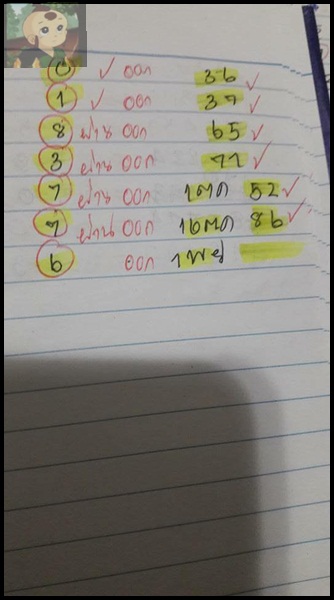 0 ✓ ออก 36 ✓
1 ✓ ออก 37 ✓
8 ผ่าน ออก 65 ✓
3 ผ่าน ออก 77 ✓
7 ผ่าน ออก 1ตค 52 ✓
7 ผ่าน ออก 16ตค 86 ✓
6 ออก 1พย